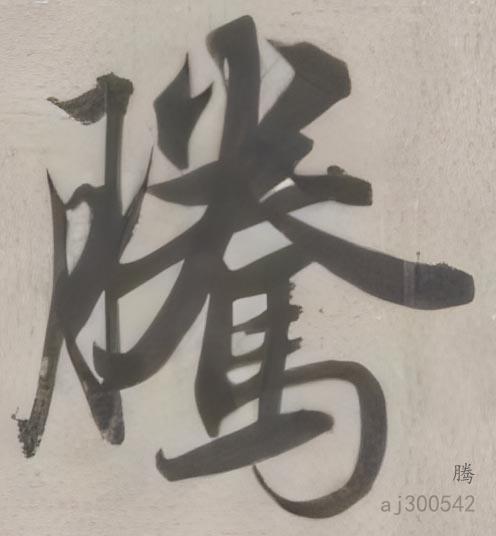 騰
腾
aj300542